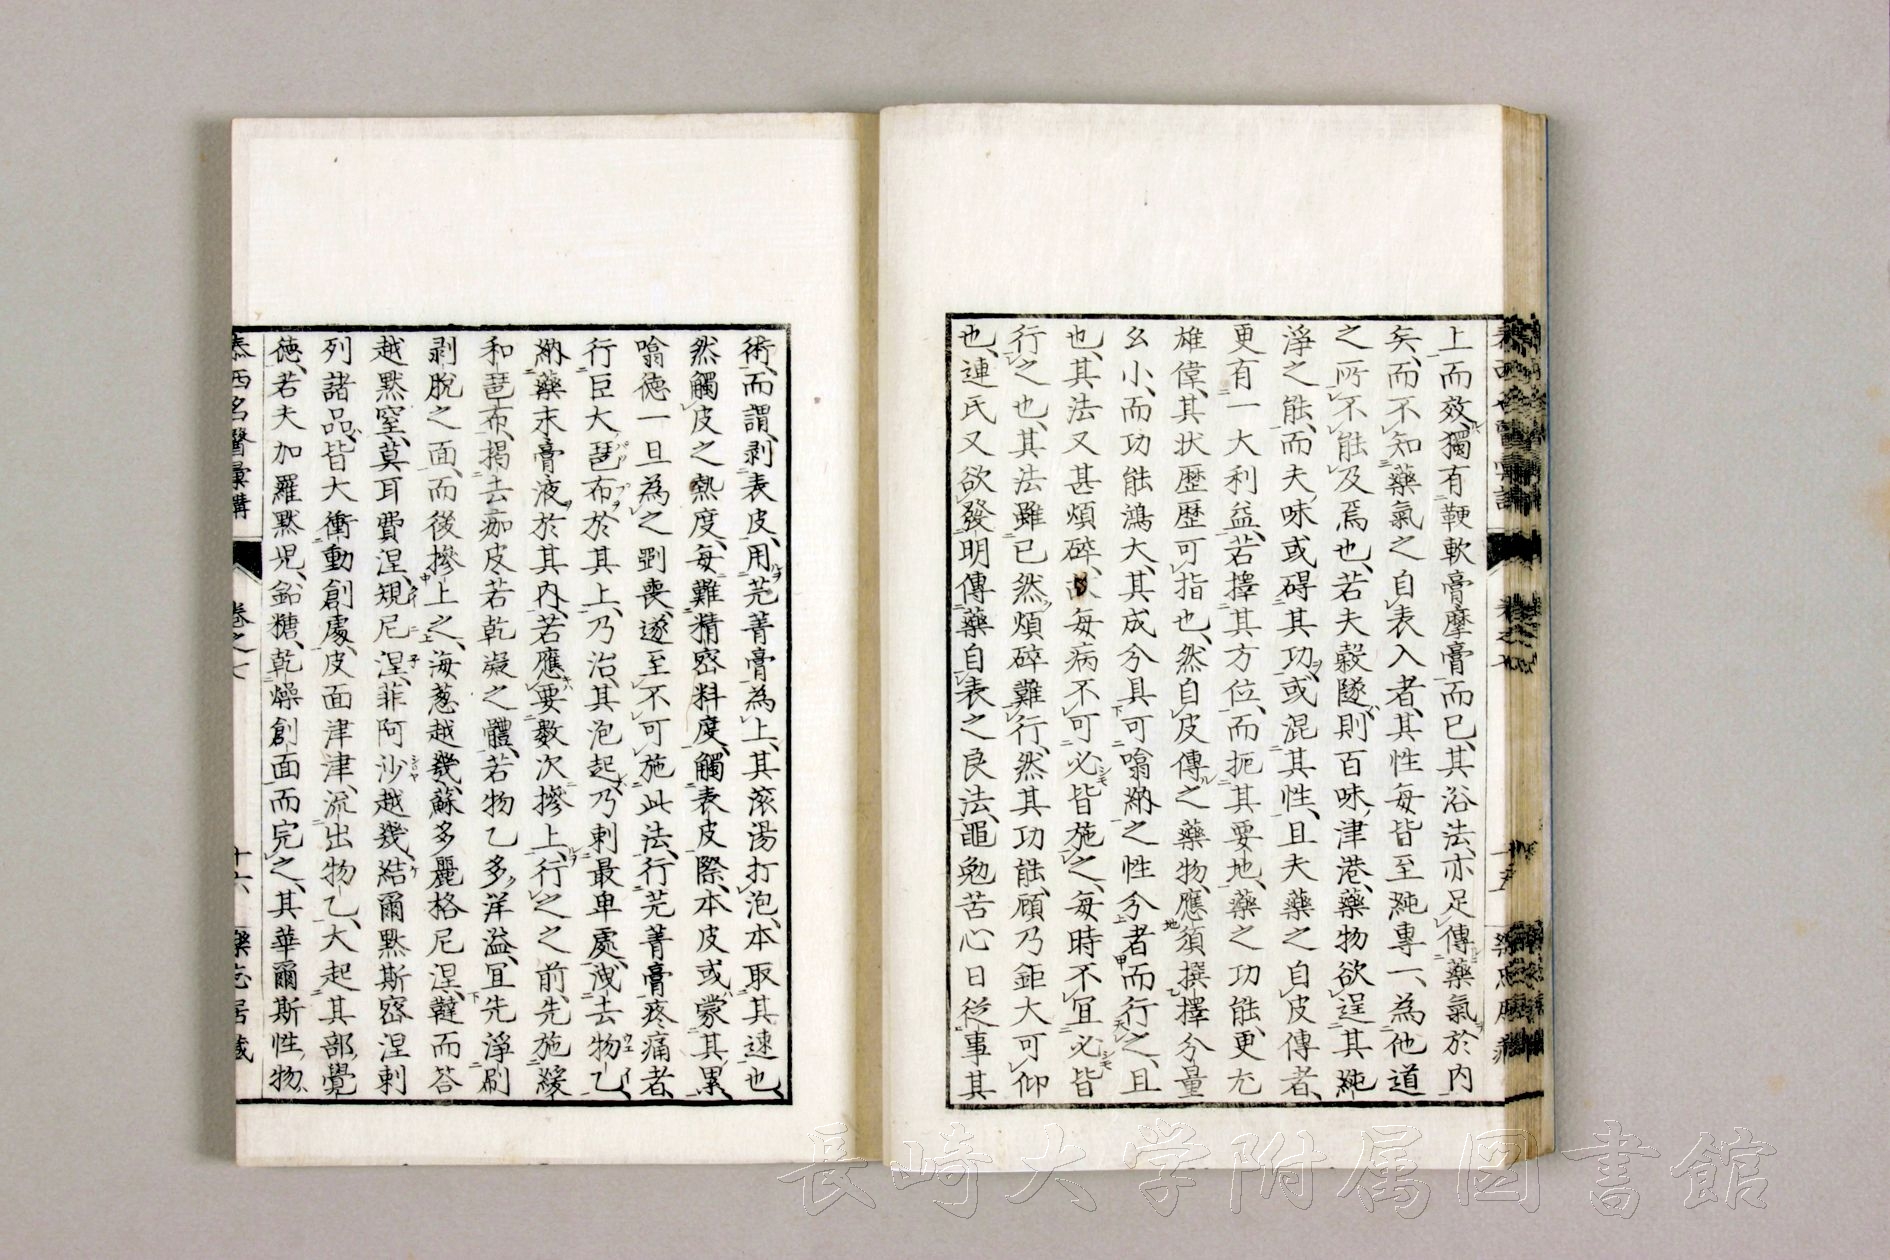 上而效、獨有鞕軟膏摩膏而已、其浴法、亦足傳藥氣於内
矣、而不知藥氣之自表入者、其性每皆至純專一、為他道
之所不能及焉也、若夫穀隧、則百味津港、藥物欲逞其純
淨之能、而夫味或碍其功、或混其性、且夫藥之自皮傳者、
更有一大利益、若擇其方位、而扼其要地、藥之功能、更尤
雄偉、其状歴歴可指也、然自皮傳之藥物、應須撰擇分量
幺小、而功能鴻大、其成分具可噏納之性分者而行之、且
也、其法又甚煩碎、故每病不可必皆施之、每時不宜必皆
行之也、其法雖已然煩碎難行、然其功能、頋乃鉅大可仰
也、連氏又欲發明傳藥自表之良法、黽勉苦心日從事其
術、而謂、剥表皮、用芫菁膏為上、其滚湯打泡、本取其速也、
然觸皮之熱度、每難精密料度、觸表皮際、本皮或蒙其累、
噏徳一旦為之剄喪、遂至不可施此法、行芫菁膏疼痛者、
行臣大琶布於其上、乃治、其泡起、乃刺最卑處、洩去物乙、
納藥末膏液於其内、若應要數次摻上、行之之前、先施緩
和琶布、揭去痂皮若乾凝之體、若物乙多洋溢、宜先淨刷
剥脱之面、而後摻上之、海葱越幾、蘇多麗格尼涅、韃而答
越黙窒、莫耳費涅、規尼涅、菲阿沙越幾、結爾黙斯密涅刺
列諸品、皆大衝動創處、皮面津津、流出物乙、大起其部、覺
徳、若夫加羅黙児、鉛糖、乾燥創面而完之、其華爾斯性、物
泰西名醫彙講 卷之七 十六 樂志居藏
長崎大学附属図書館